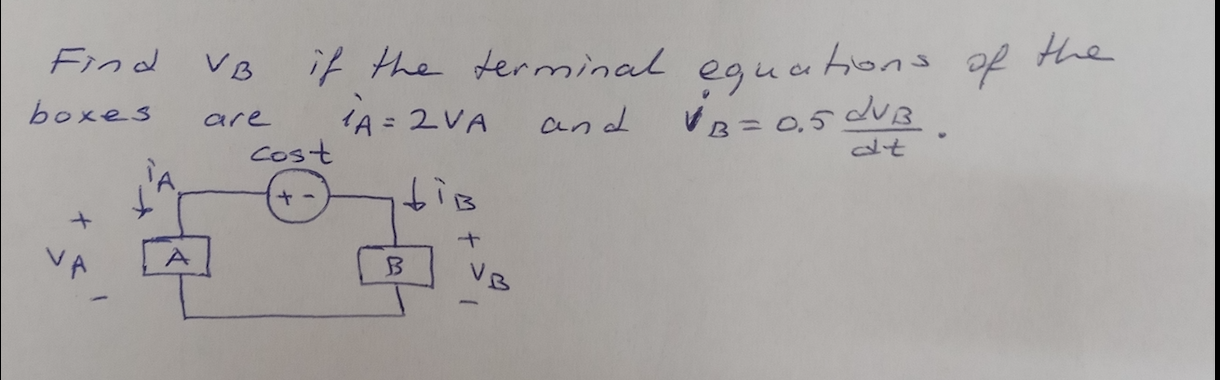 Find vB if the terminal equations of the
boxes are iA = 2vA and iB = 0.5 dvB/dt.
cost
iA
+ -
iB
+
vA
-
A
B
+
vB
-